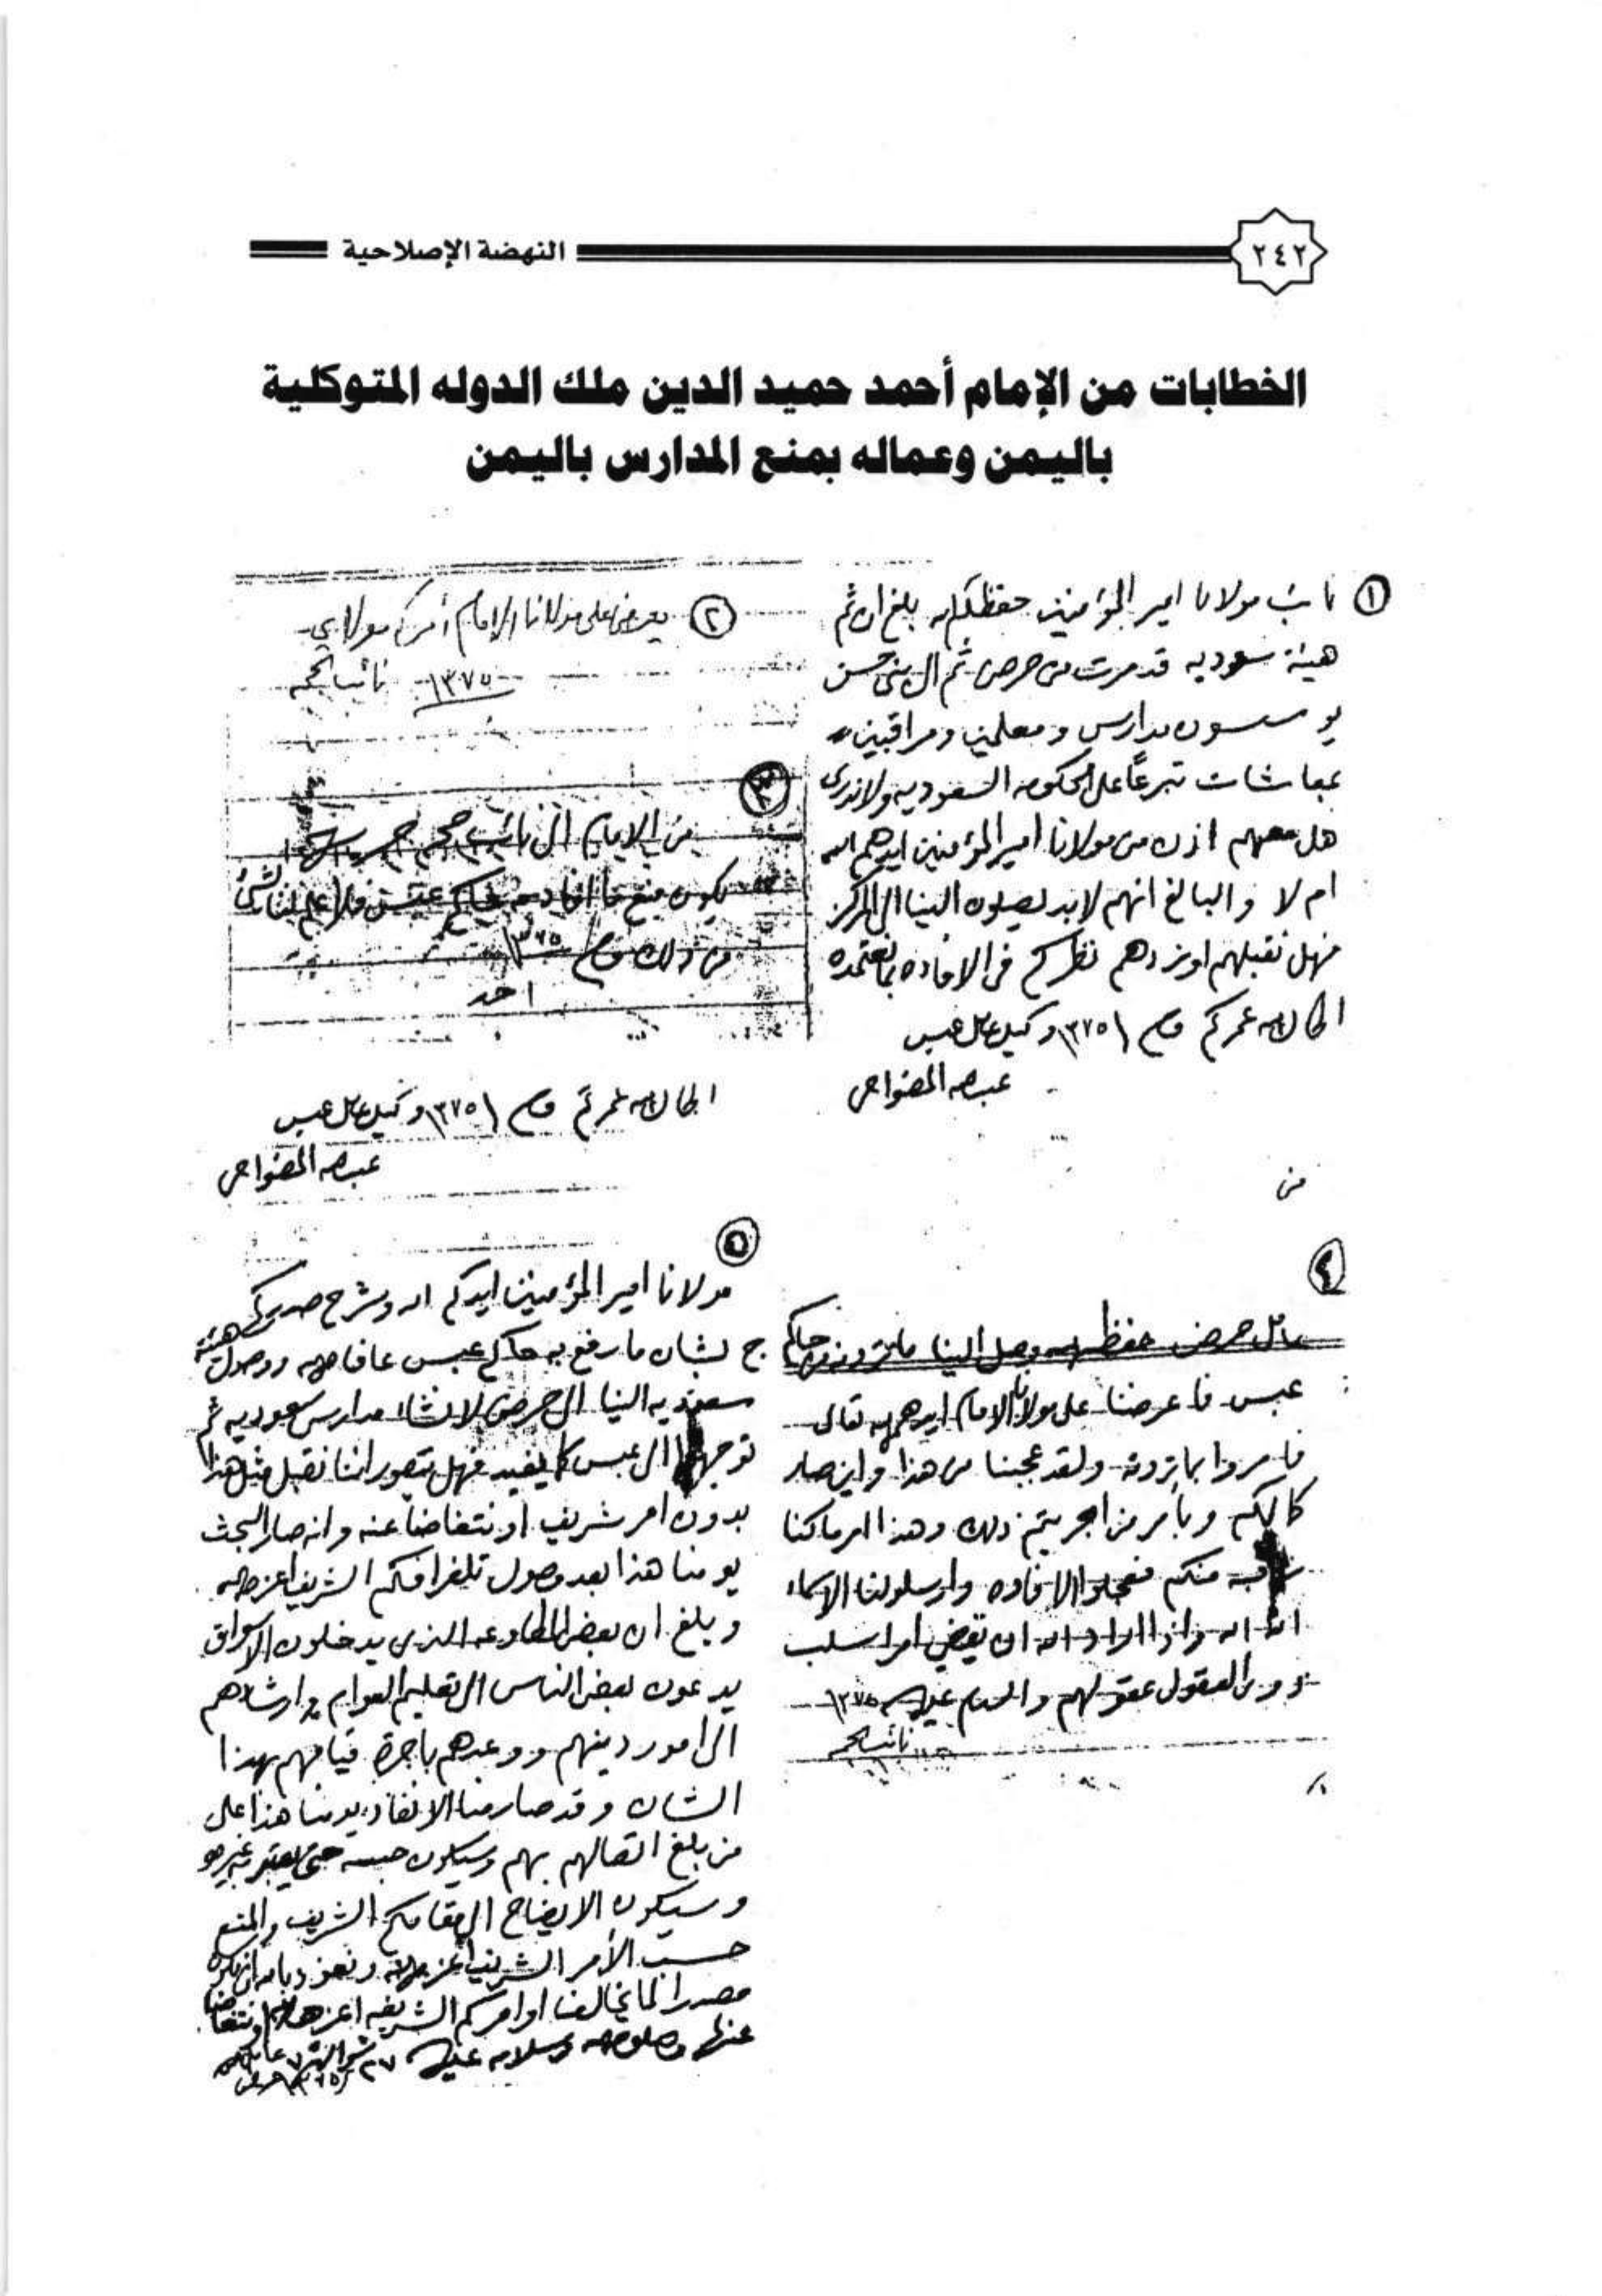 ٢٤٢
النهضة الإصلاحية
الخطابات من الإمام أحمد حميد الدين ملك الدوله المتوكلية
باليمن وعماله بمنع المدارس باليمن
١ نائب مولانا امير المؤمنين حفظكم الله بلغ ان ثم
هيئة سعوديه قد مرت من حرض ثم الى بني حسن
يوسسون مدارس ومعلمين ومراقبين
بمعاشات تبرعاً على الحكومه السعوديه ولا ندرى
هل معهم اذن من مولانا امير المؤمنين ايدهم الله
ام لا والبالغ انهم لابد يصلون الينا الى المركز
فهل نقبلهم او نردهم نظركم في الافاده بما نعتمده
اطال الله عمركم ١٣٧٥ وكيل عامل عبس
عبدالله الضواحى
٢ يعرض على مولانا الامام أمركم مولاي
١٣٧٥ نائب الحجه
٣
من الامام الى نائب حجه
يكون منع ما افاد حاكم عبس
من ذلك ١٣٧٥
احمد
اطال الله عمركم ١٣٧٥ وكيل عامل عبس
عبدالله الضواحى
من
٤
عامل حرض حفظه الله وصل الينا ما ترونه من حاكم
عبس فاعرضنا على مولانا الامام ايدهم الله تعالى
فامروا بما ترونه ولقد عجبنا من هذا واين صار
كمالكم وبامر من اجر يتم ذلك وهذا امر ما كنا
منكم فعجلوا الافاده وارسلوا لنا الاسماء
انشا الله واذا اراد الله ان يقضي امرا سلب
ذوى العقول عقولهم والسلام عليكم ١٣٧٥
نائب الحجه
٥
مولانا امير المؤمنين ايدكم الله وشرح صدركم
ج بشان ما رفع به حاكم عبس عافاه الله ووصول هيئة
سعوديه الينا الى حرض لانشاء مدارس سعوديه ثم
توجهها الى عبس كما يفيد فهل يتصور اننا نقبل مثل هذا
بدون امر شريف او نتغاضا عنه وانه صار البحث
يومنا هذا بعد وصول تلغرافكم الشريف اعزه الله
وبلغ ان بعض المطاوعه الذى يدخلون الاسواق
يدعون بعض الناس الى تعليم العوام وارشادهم
الى امور دينهم ووعدهم باجرة قيامهم بهذا
الشان وقد صار منا الانفاذ يومنا هذا على
من بلغ اتصالهم بهم وسيكون حبسه حتى يعتبر به غيره
وسيكون الايضاح الى مقامكم الشريف والمنع
حسب الأمر الشريف أعزه الله ونعوذ بالله ان نكون
مصدرا لما يخالف اوامركم الشريفه اعزها الله او نتغاضا
عنها وصلوة الله وسلامه عليكم ٢٧ شوال